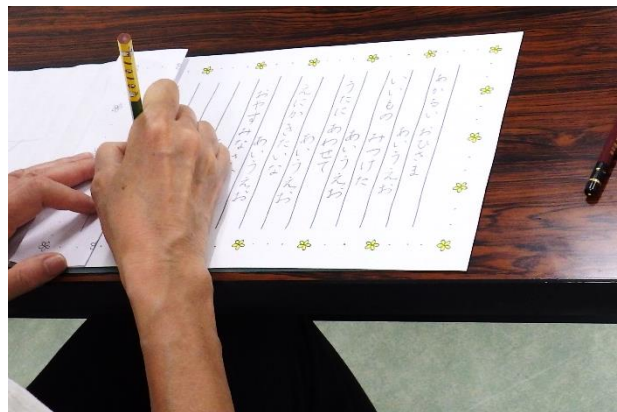 あかるい おひさま
あいうえお
いいもの みつけた
あいうえお
うたに あわせて
あいうえお
えにかきたいな
あいうえお
おやすみなさ